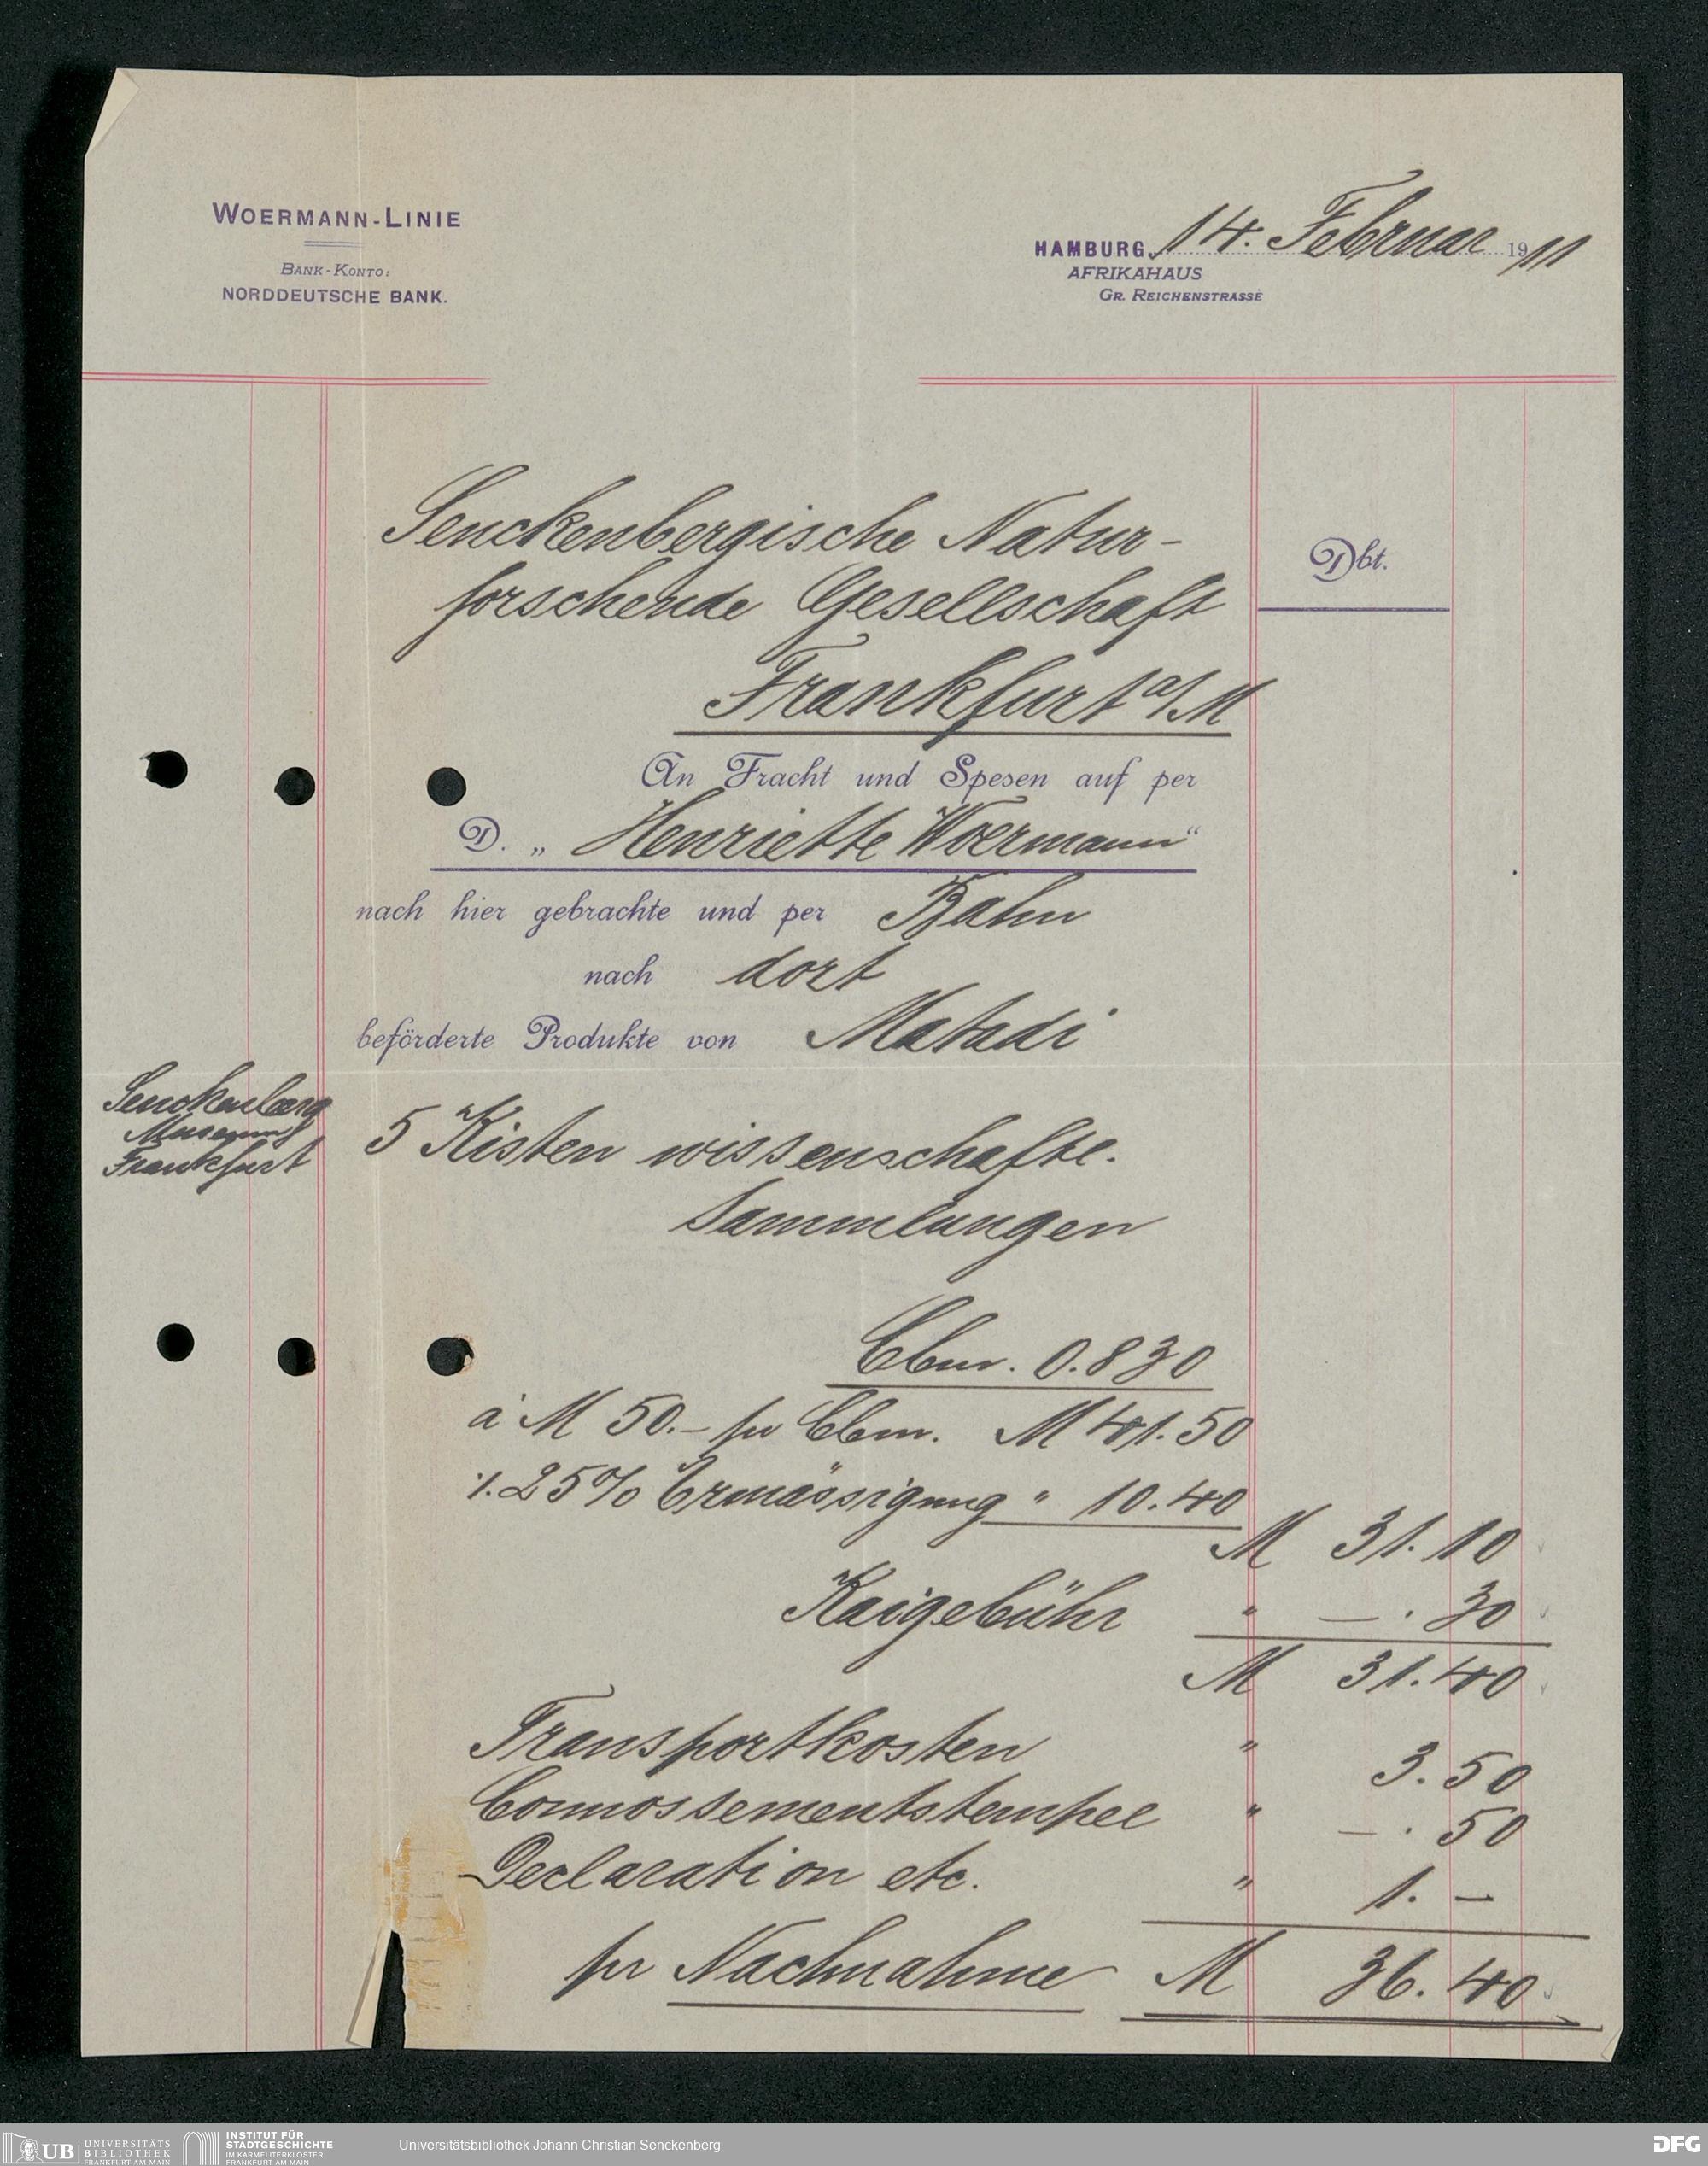 WOERMANN-LINIE
BANK-KONTO:
NORDDEUTSCHE BANK.
HAMBURG, 14. Februar 1911
AFRIKAHAUS
GR. REICHENSTRASSE
Senckenbergische Natur-
forschende Gesellschaft
Frankfurt a/M
Dbt.
An Fracht und Spesen auf per
D. „Henriette Woermann“
nach hier gebrachte und per Bahn
nach dort
beförderte Produkte von Matadi
Senckenberg
Museum
Frankfurt
5 Kisten wissenschaftl.
Sammlungen
Cbm. 0.830
à M 50.- pr Cbm. M 41.50
./. 25% Ermässigung " 10.40
M 31.10
Kaigebühr " —.30
M 31.40
Transportkosten " 3.50
Connossementstempel " —.50
Declaration etc. " 1.—
pr Nachnahme M 36.40
UB UNIVERSITÄTS
BIBLIOTHEK
FRANKFURT AM MAIN
INSTITUT FÜR
STADTGESCHICHTE
IM KARMELITERKLOSTER
FRANKFURT AM MAIN
Universitätsbibliothek Johann Christian Senckenberg
DFG